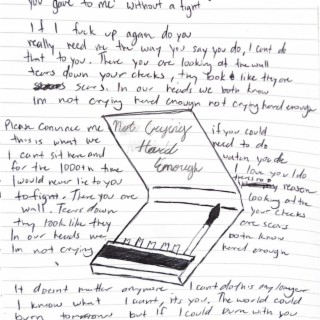 you gave to me without a fight
If I fuck up again do you
really need me the way you say you do, I cant do
that to you. There you are looking at the wall
tears down your cheeks, they look like they are
scars. In our heads we both know
Im not crying hard enough not crying hard enough
Please convince me
this is what we
I cant sit here and
for the 1000th time
I would never lie to you
to fight. There you are
wall. Tears down
they look like they
In our heads we
Im not crying
Not Crying
Hard
Enough
if you could
need to do
watch you die
love you I do
reason
looking at the
your cheeks
are scars
both know
hard enough
It doesnt matter anymore. I cant do this any longer
I know what I want, its you. The world could
burn tomorrow but if I could burn with you